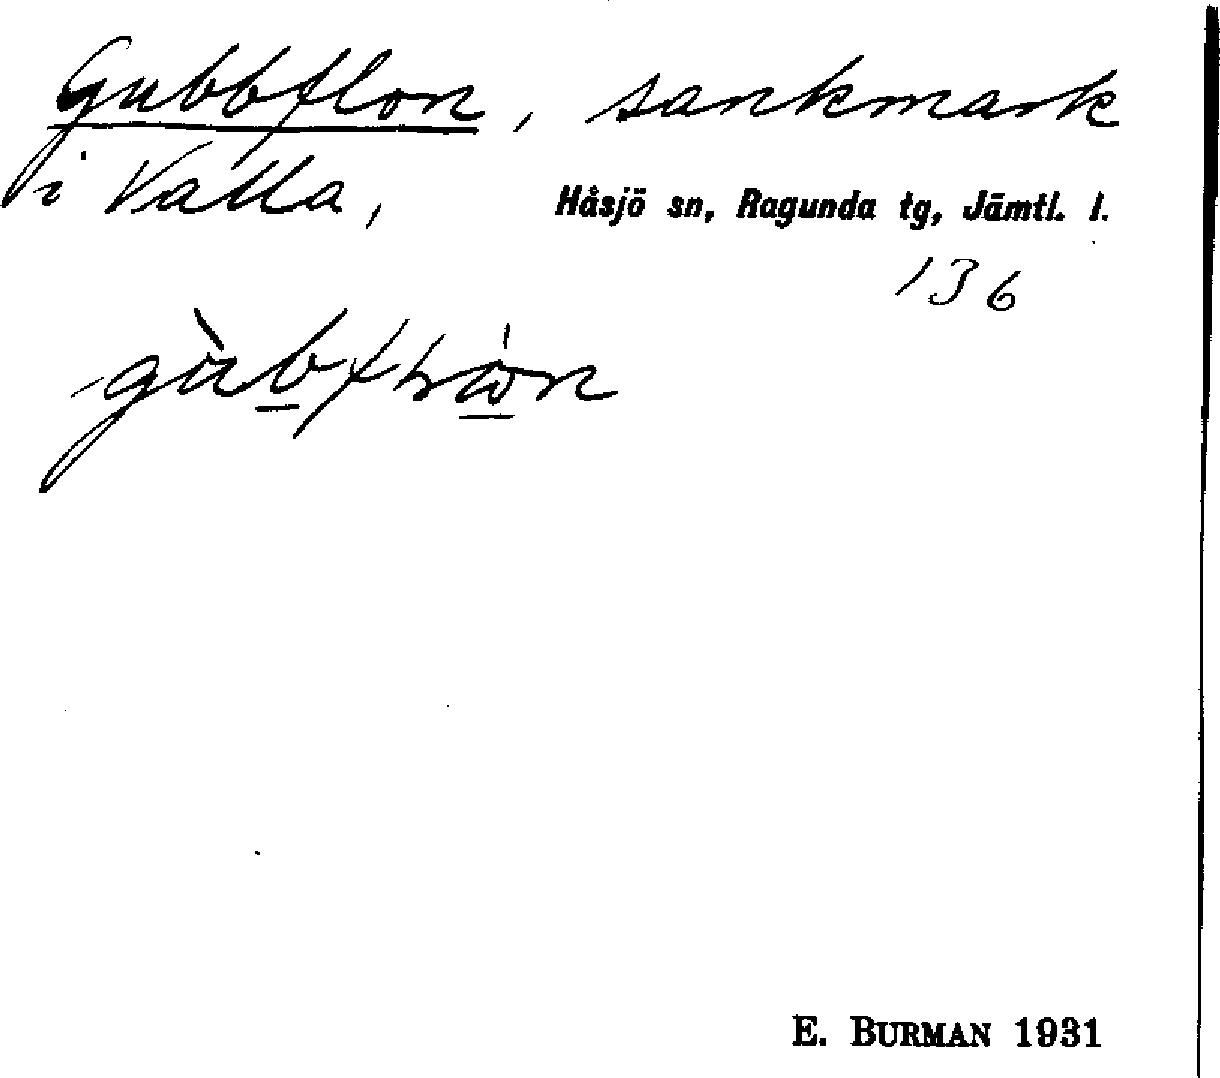 Gubbflon, sankmark
i Valla, Håsjö sn, Ragunda tg, Jämtl. l.
136
E. BURMAN 1931